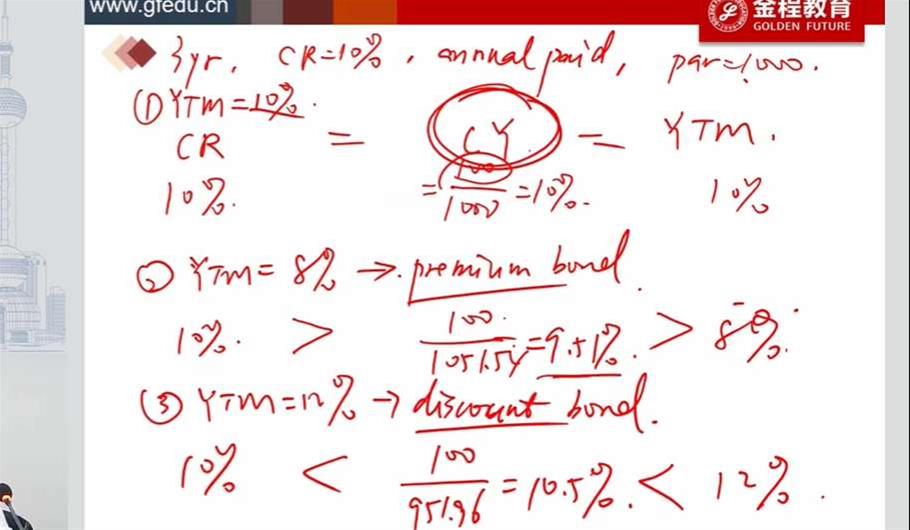 www.gfedu.cn
金程教育
GOLDEN FUTURE
3yr, CR=10%, annual paid, par=1,000.
① YTM=10%.
CR = CY = YTM.
10%. = 100/1000 = 10%. 10%
② YTM = 8% → premium bond.
10%. > 100/1051.54 = 9.51%. > 8%.
③ YTM=12% → discount bond.
10% < 100/951.96 = 10.5%. < 12%.